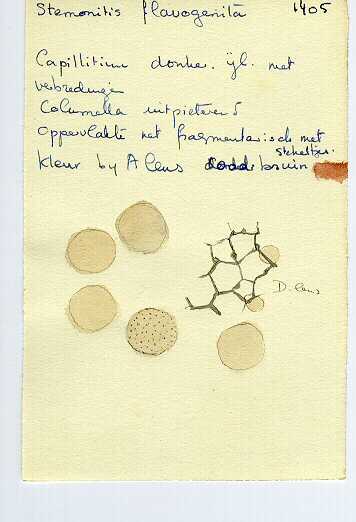 Stemonitis flavogenita 1405
Capillitium donker. ijl. met
verbredingen
Columella uitpieterend
Oppervlakte net fragmentarisch met
stekeltjes.
Kleur by A lens bruin
D. lens